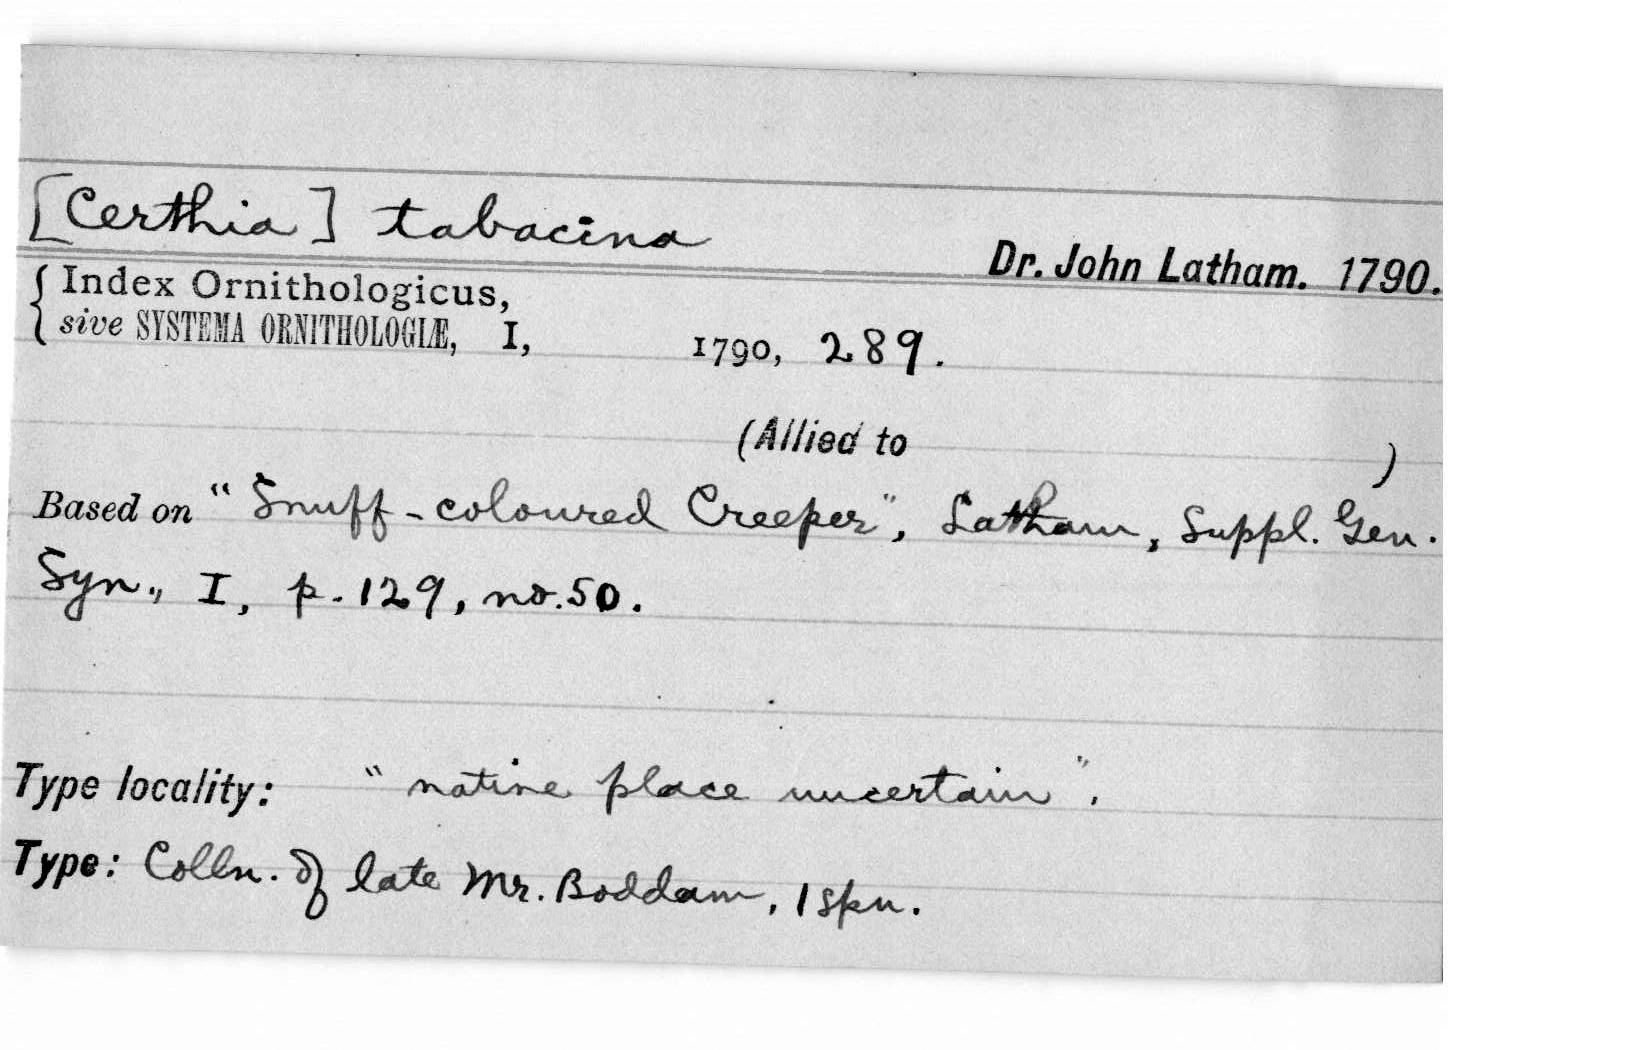 [Certhia] tabacina
Dr. John Latham. 1790.
{ Index Ornithologicus,
sive SYSTEMA ORNITHOLOGIÆ, I, 1790, 289.
(Allied to )
Based on "Snuff-coloured Creeper", Latham, Suppl. Gen.
Syn., I, p. 129, no. 50.
Type locality: "native place uncertain".
Type: Colln. of late Mr. Boddam, 1 spn.